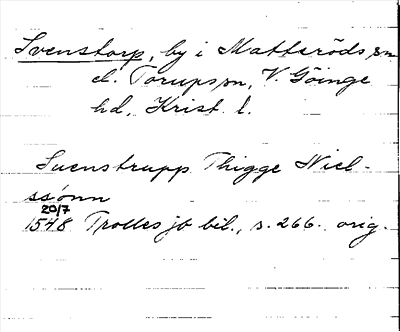 Svenstorp, by i Matteröds sn
el. Torups sn, V. Göinge
hd, Krist. l.
Suenstrupp Thigge Niel-
ssønn
20/7
1548 Trolles jb bil., s. 266. orig.